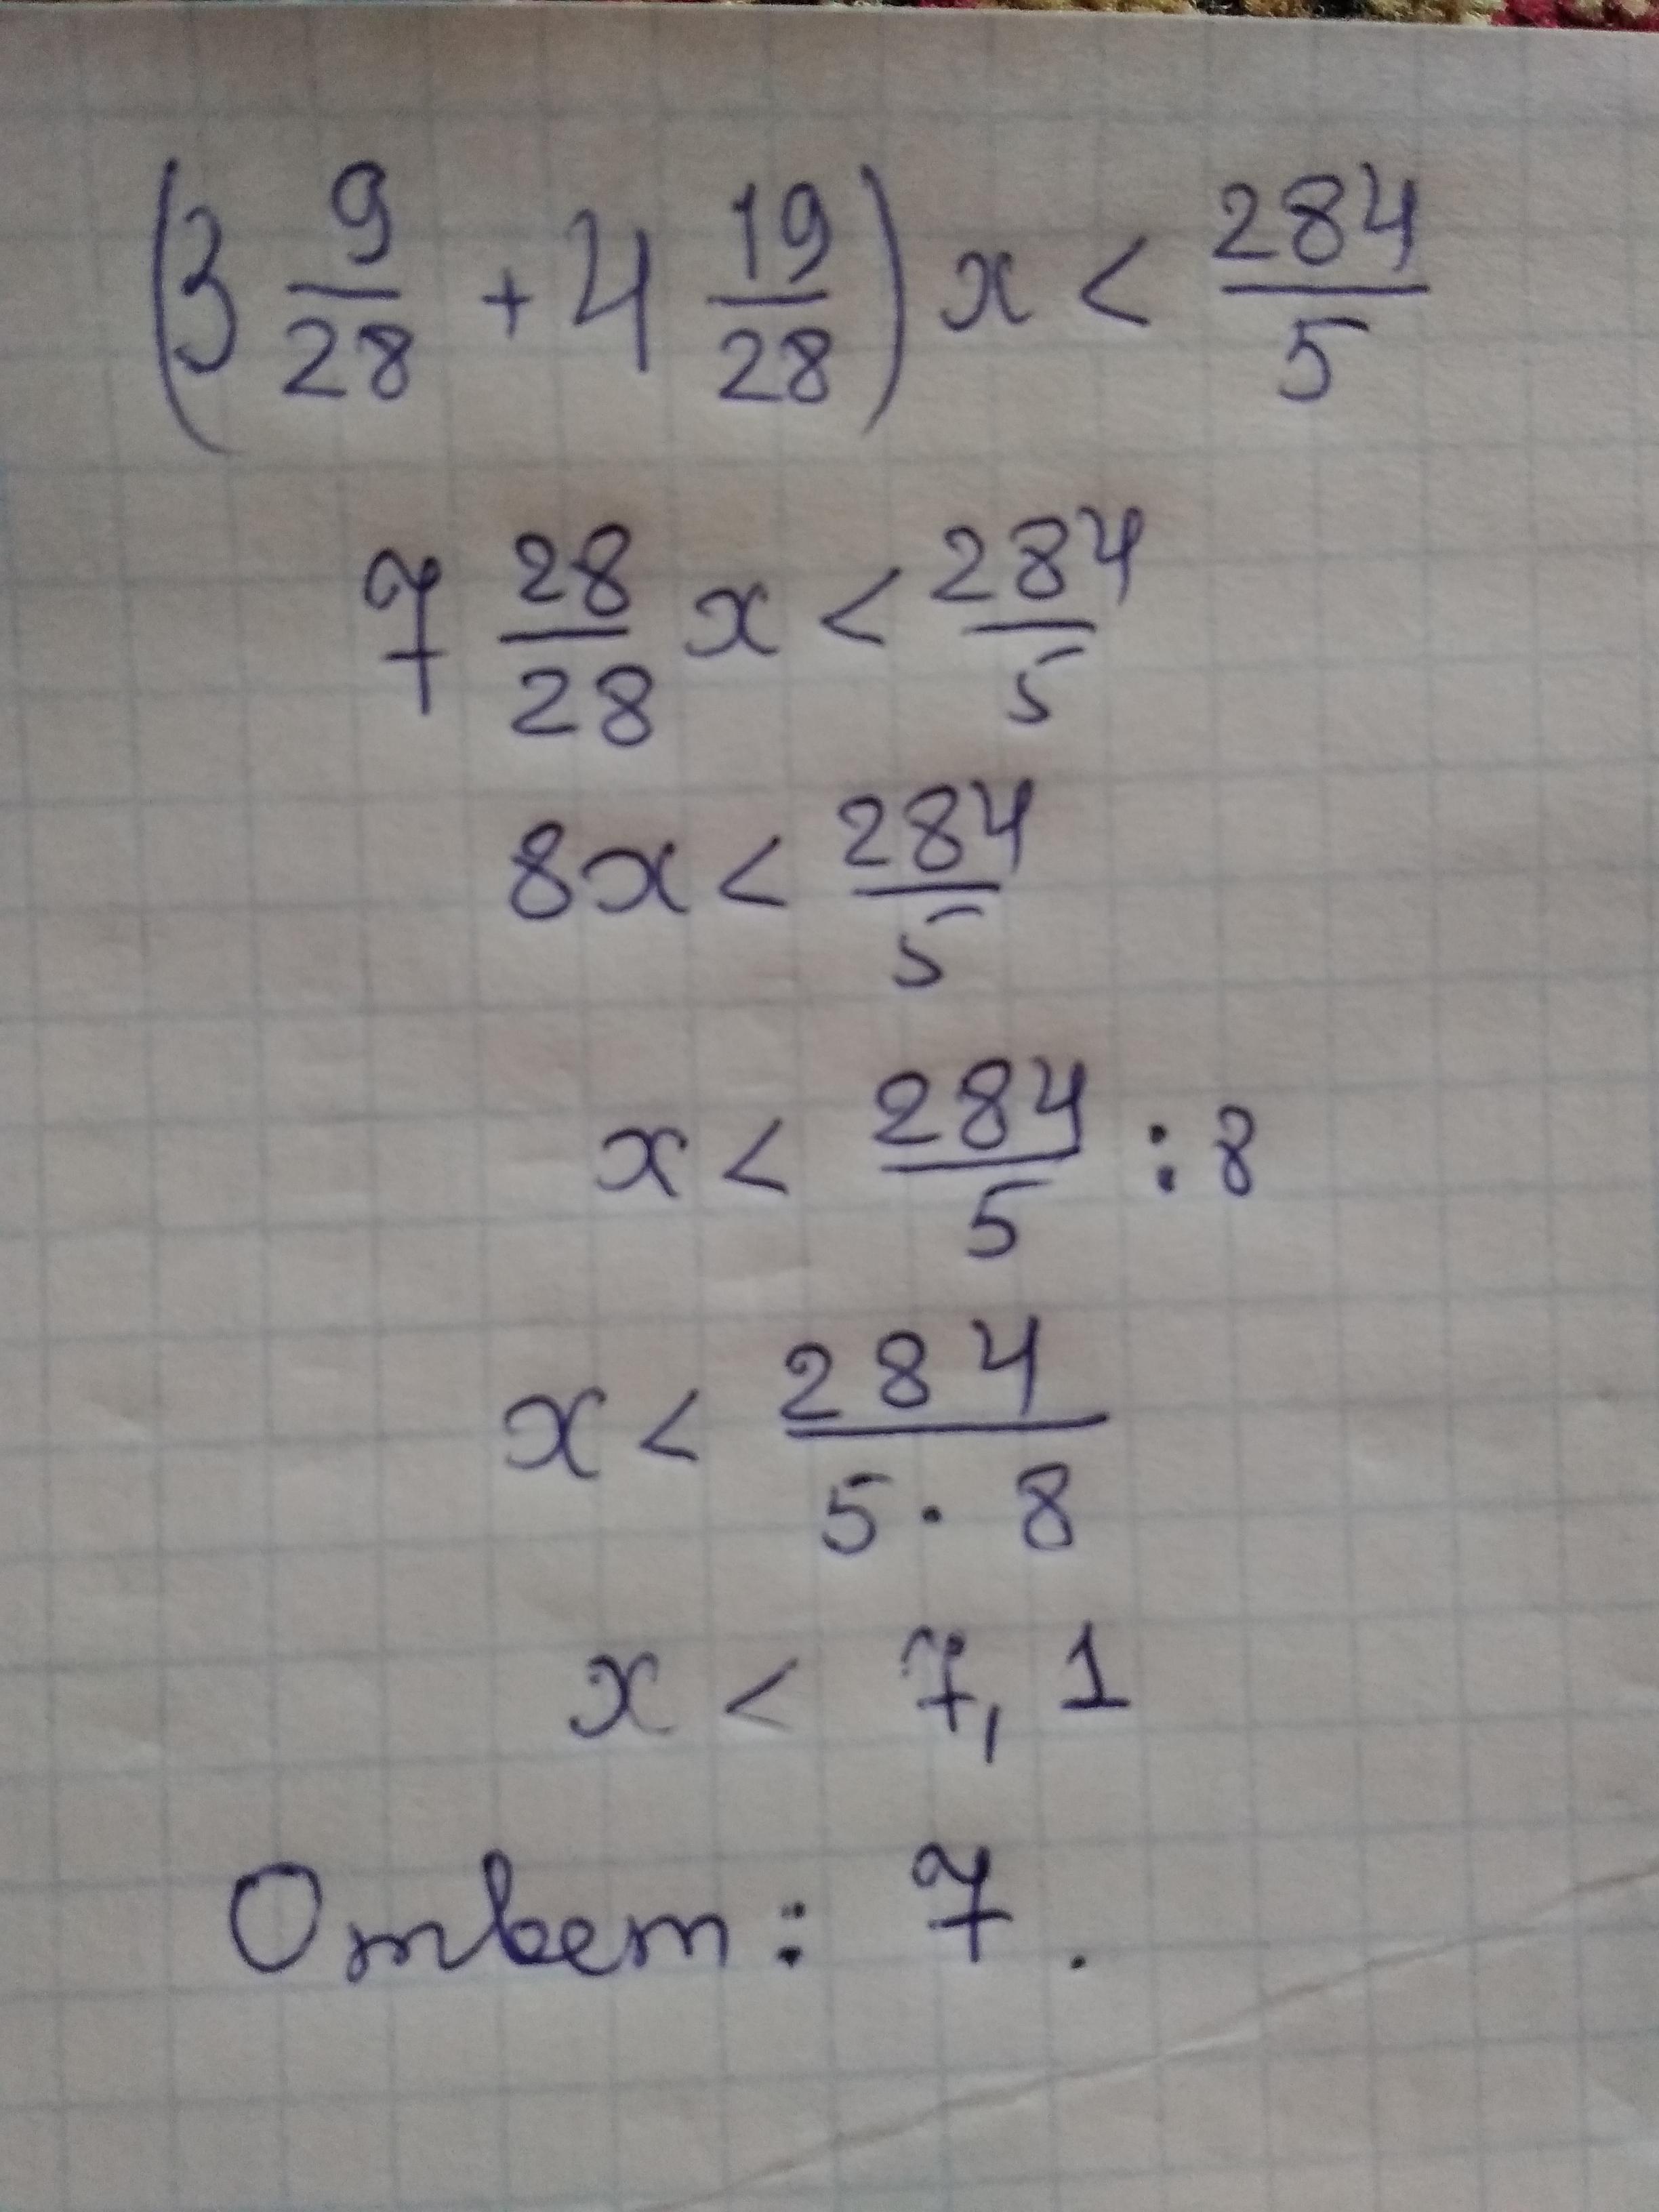 (3 9/28 + 4 19/28) x < 284/5
7 28/28 x < 284/5
8x < 284/5
x < 284/5 : 8
x < 284/(5 · 8)
x < 7,1
Ответ: 7.